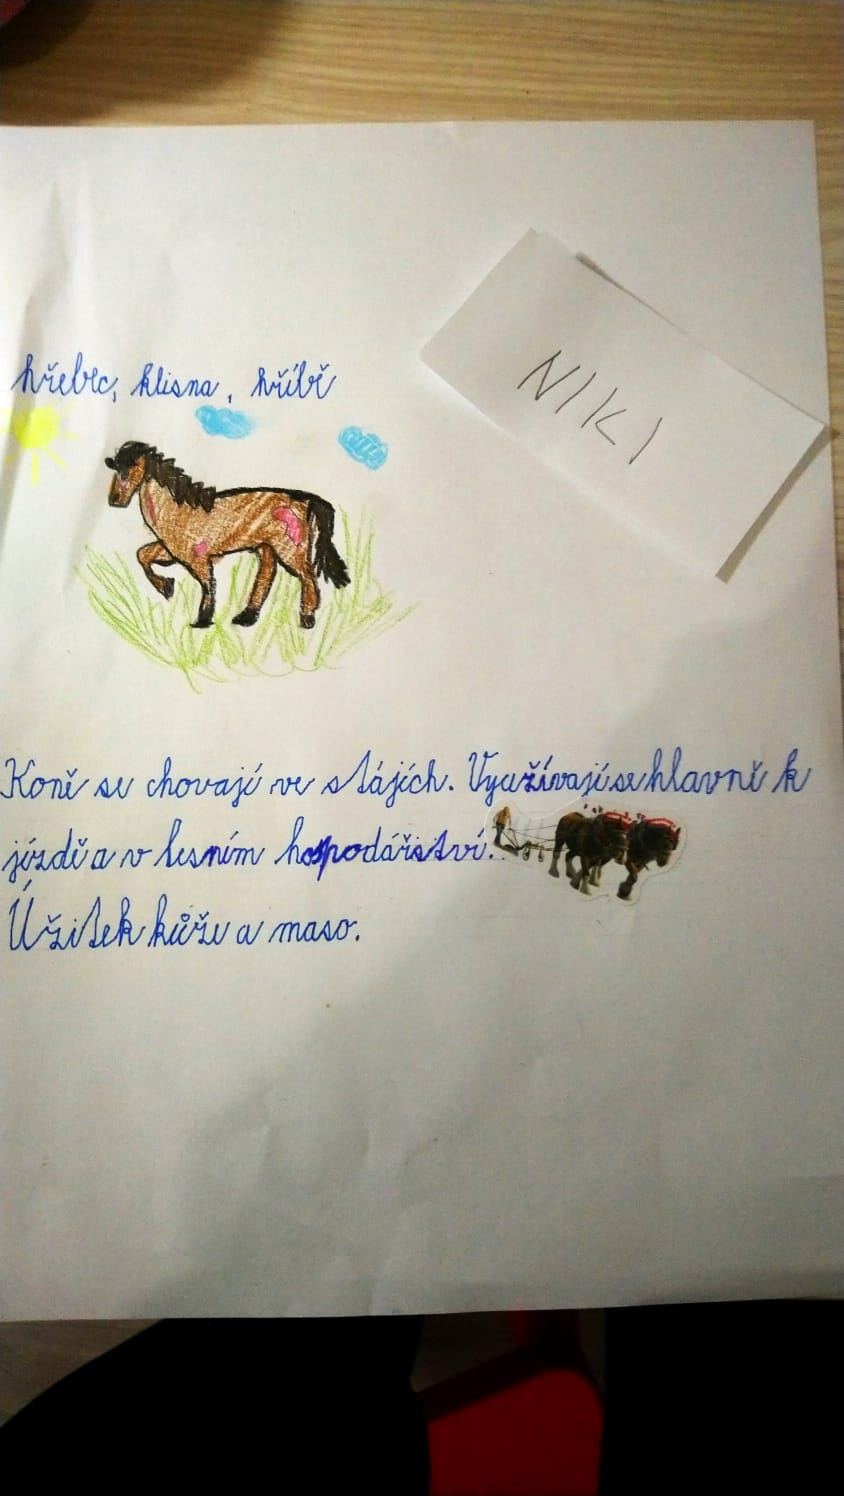 hřebec, klisna, hříbě
NIKI
Koně se chovají ve stájích. Využívají se hlavně k
jízdě a v lesním hospodářství.
Úžitek kůže a maso.